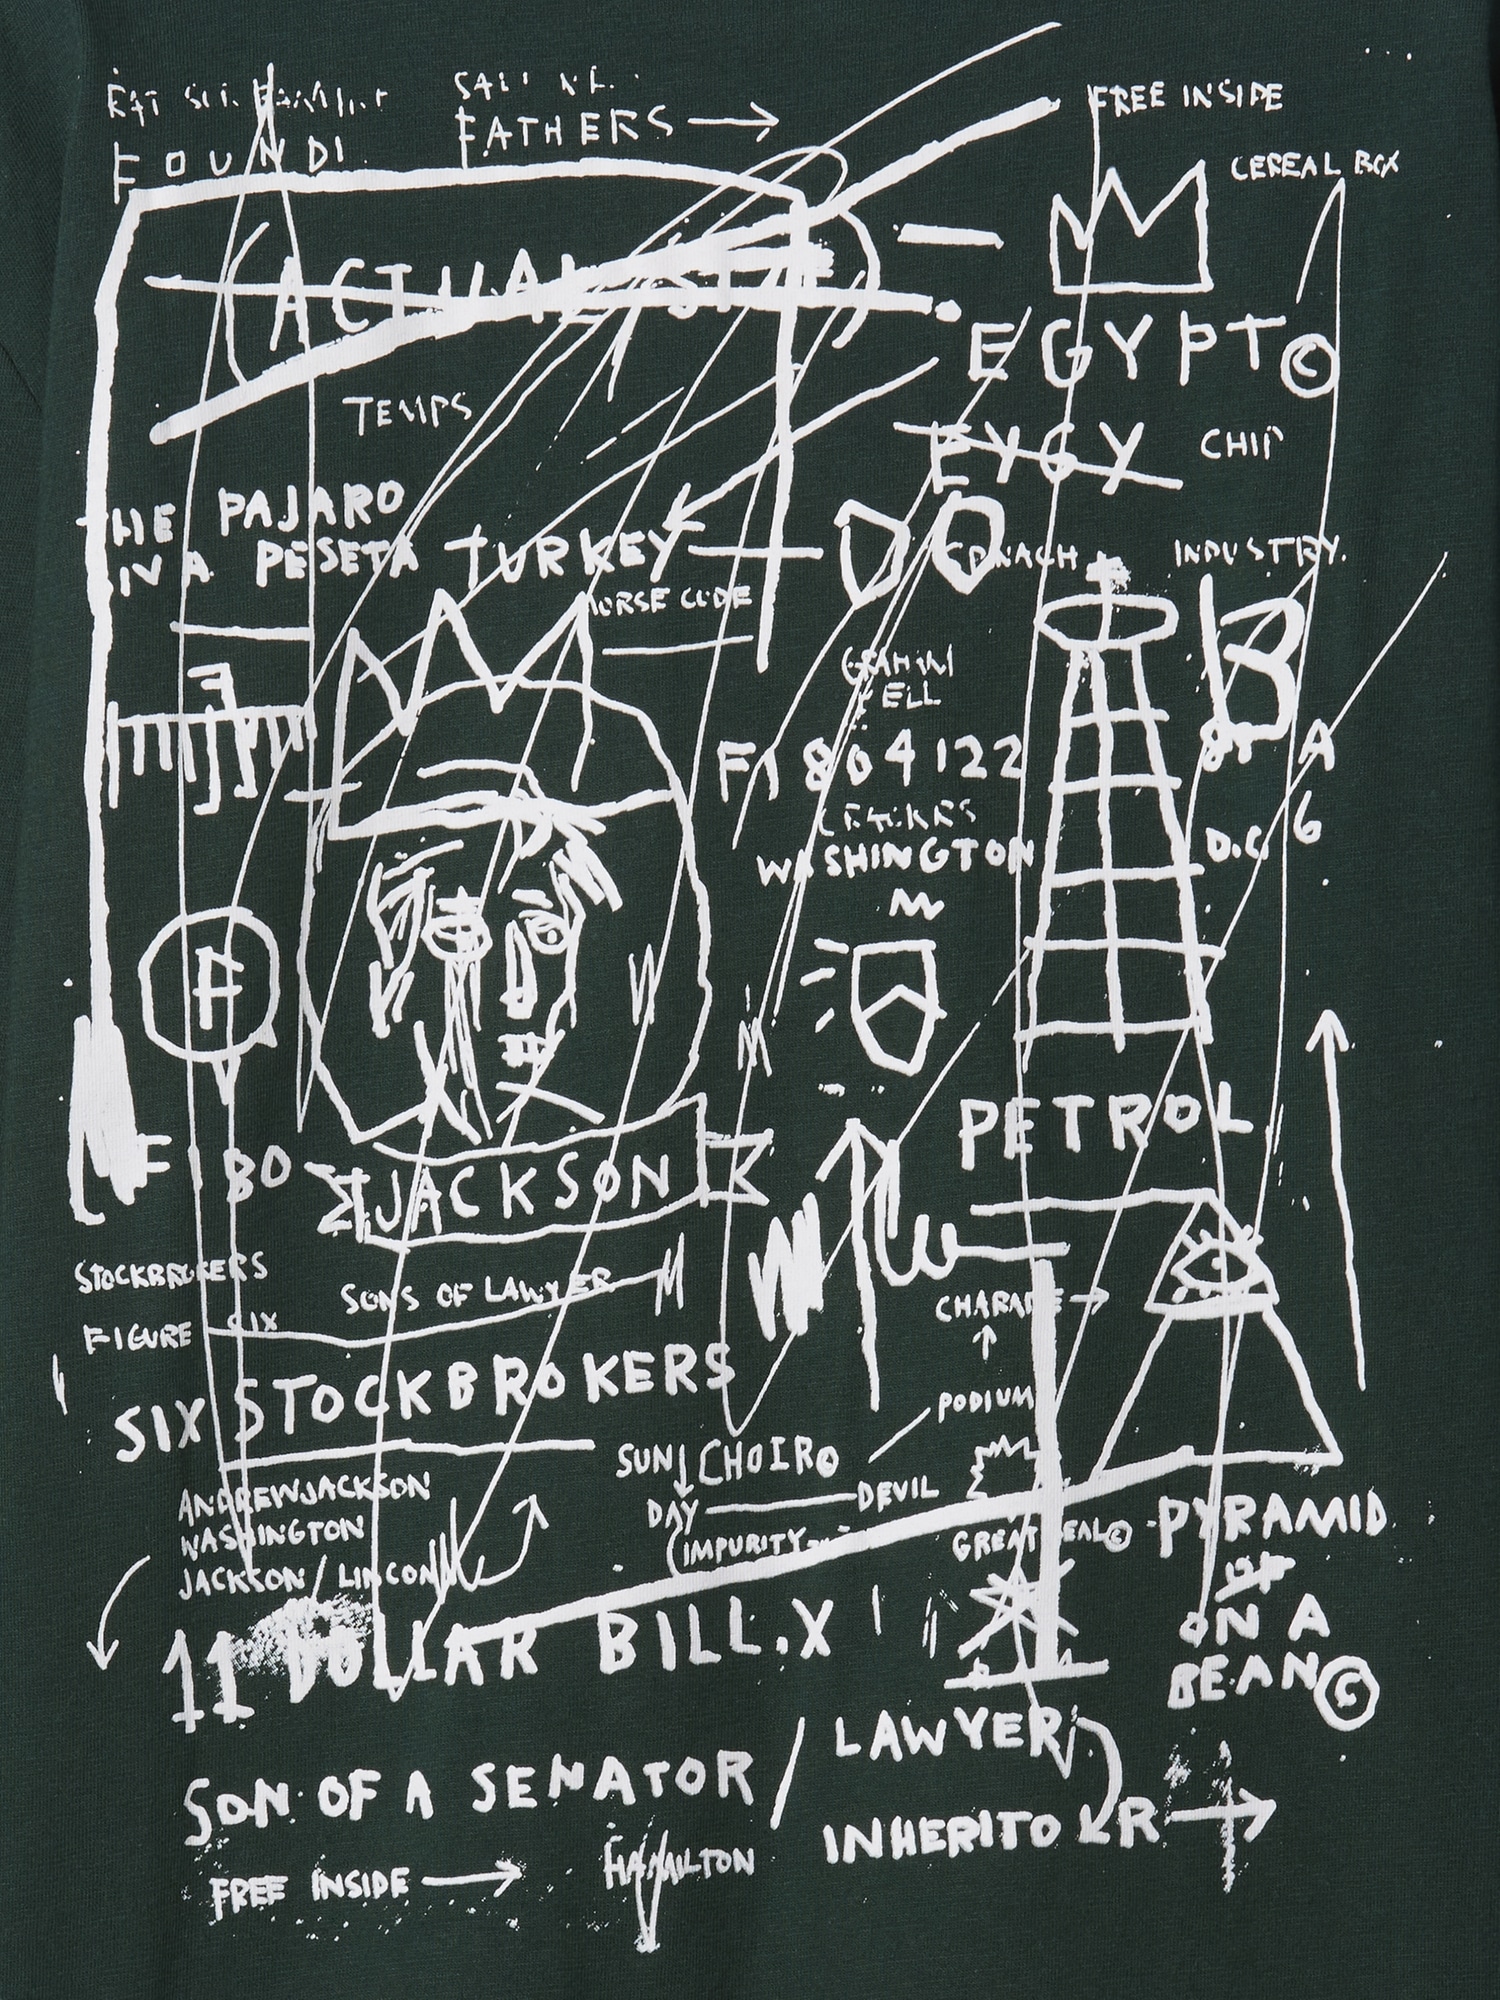 FOUNDI
FATHERS
FREE INSIDE
CEREAL BOX
(ACTUAL SIZE)
EGYPT©
TEMPS
EYGY
CHIP
PAJARO
PESETA
TURKEY
DO
INDUSTRY.
MORSE CODE
B
GRAHAM
ELL
F1 804122
A
WASHINGTON
D.C
6
F
M
PETROL
F 180
JACKSON
STOCKBROKERS
SONS OF LAWYER
M
CHARADE
FIGURE SIX
SIX STOCKBROKERS
PODIUM
SUN CHOIR©
DAY
DEVIL
(IMPURITY
ANDREWJACKSON
WASHINGTON
JACKSON/LINCON
GREAT SEAL©
PYRAMID
OF
ON A
BEAN©
11 DOLLAR BILL.X
SON OF A SENATOR / LAWYER
INHERITOR
FREE INSIDE
HAMILTON